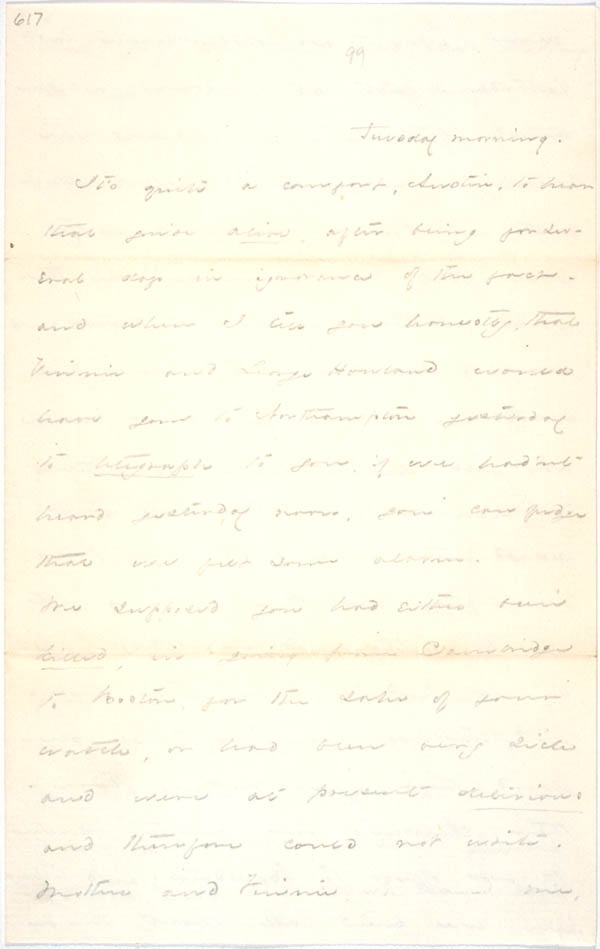 617
99
Tuesday morning.
It's quite a comfort, Austin, to hear
that you're alive, after being for sev-
eral days in ignorance of the fact -
and when I tell you honestly, that
Vinnie and George Howland would
have gone to Northampton yesterday
to telegraph to you, if we had'nt
heard yesterday noon, you can judge
that we felt some alarm.
We supposed you had either been
killed, in going from Cambridge
to Boston, for the sake of your
watch, or had been very sick
and were at present delirious
and therefore could not write.
Mother and Vinnie, me,